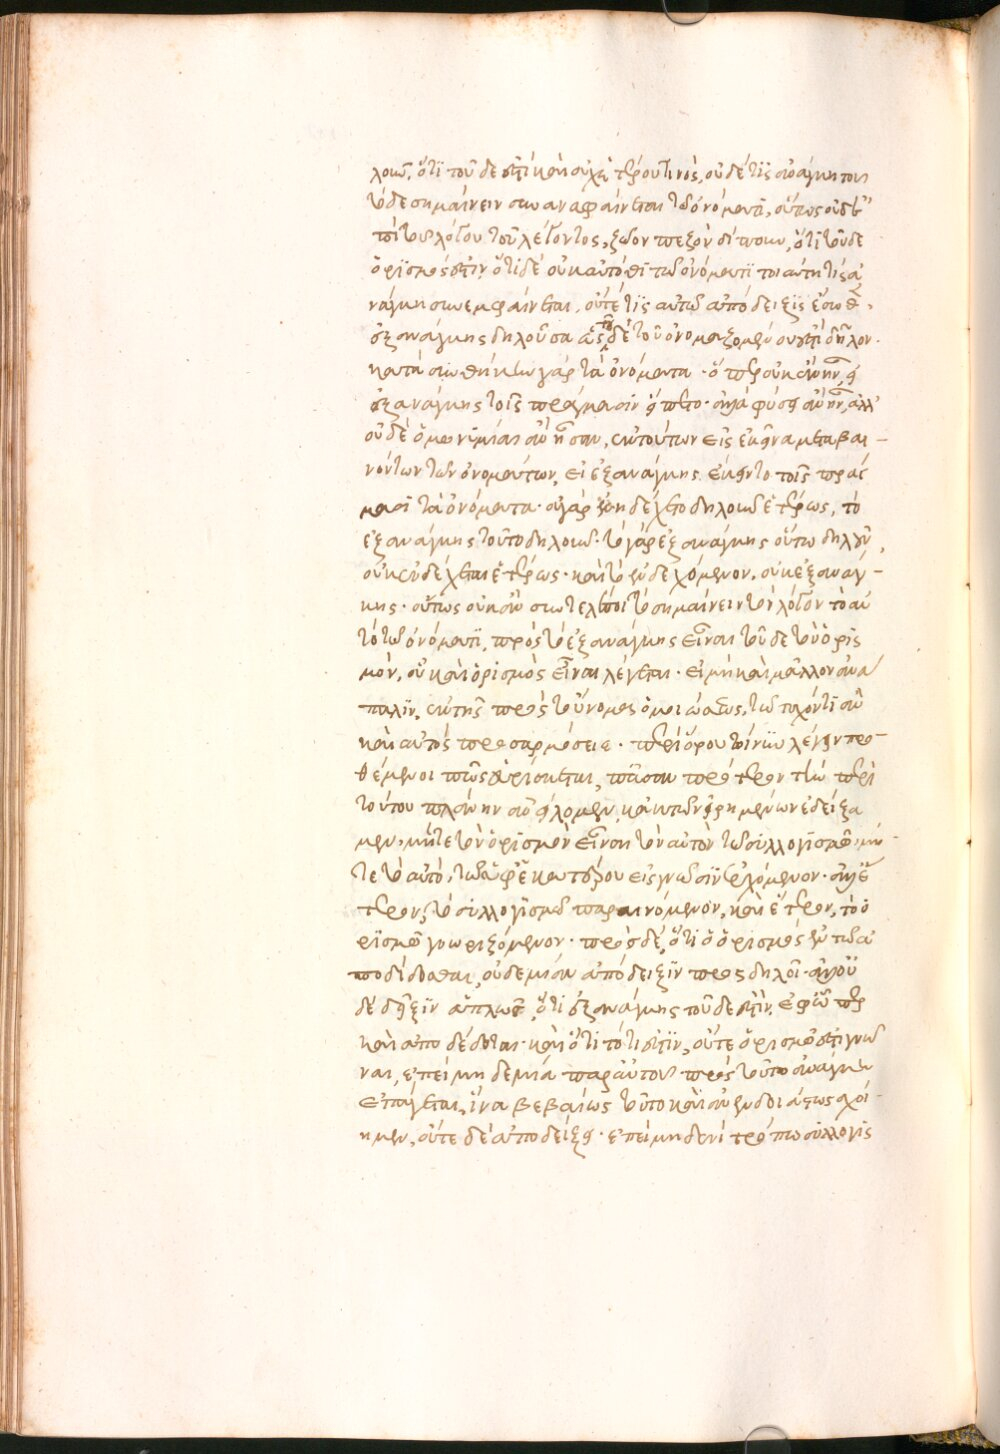 λοιῶν, ὅτι τοῦδε ἐστὶ καὶ οὐχὶ ἑτέρου τινὸς, οὐδέ τις ἀνάγκη τοῦ
τόδε σημαίνειν συναναφαίνεται τῷ ὀνόματι, οὕτως οὐδ'
τοῦ λόγου τοῦ λέγοντος, ζῶον πεζὸν δίπουν, ὅτι τοῦδε
ὁρισμός ἐστιν, ὅτι δὲ οὐκ αὐτόθι τῷ ὀνόματι τοιαύτη τις ἀ
νάγκη συνεμφαίνεται, οὔτέ τις αὐτῷ ἀπόδειξις
ἐξ ἀνάγκης δηλοῦσα ὡς τόδε τοῦ ὀνομαζομένου ἐστὶ δῆλον.
κατὰ συνθήκην γὰρ τὰ ὀνόματα. ὅπερ οὐκ ἂν ἦν, εἰ
ἐξ ἀνάγκης τοῖς πράγμασιν εἵπετο. ἀλλὰ φύσει ἂν ἦν, ἀλλ'
οὐδὲ ὁμωνυμίαι ἂν ἦσαν, ἐκ τούτων εἰς ἐκεῖνα μεταβαι-
νόντων τῶν ὀνομάτων, εἰ ἐξ ἀνάγκης ἔκειντο τοῖς πράγ
μασι τὰ ὀνόματα. οὐ γὰρ ἐνεδέχετο δηλοῦν ἑτέρως, τὸ
ἐξ ἀνάγκης τοῦτο δηλοῦν. τὸ γὰρ ἐξ ἀνάγκης οὕτω δηλοῦν,
οὐκ ἐνδέχεται ἑτέρως. καὶ τὸ ἐνδεχόμενον, οὐκ ἐξ ἀνάγ-
κης. οὕτως οὐκ ἂν συντελέσοι τὸ σημαίνειν τὸν λόγον τὸ αὐ
τὸ τῷ ὀνόματι, πρὸς τὸ ἐξ ἀνάγκης εἶναι τοῦδε τὸν ὁρισ
μὸν, οὗ καὶ ὁρισμὸς εἶναι λέγεται. εἰ μὴ καὶ μᾶλλον ἀνά
παλιν, ἐκ τῆς πρὸς τοὔνομα ὁμοιώσεως, τῷ τυχόντι ἂν
καὶ αὐτὸς προσαρμόσειε. περὶ ὅρου τοίνυν λέγειν προ-
θέμενοι πῶς εὑρίσκεται, πᾶσαν πρότερον τὴν περὶ
τούτου πλάνην ἀνείλομεν, κἀν τῶν εἰρημένων ἐδείξα
μεν, μήτε τὸν ὁρισμὸν εἶναι τὸν αὐτὸν τῷ συλλογισμῷ, μή-
τε τὸ αὐτὸ, τῷ ἀφ' ἑκατέρου εἰς γνῶσιν ἐρχόμενον. ἀλλ' ἕ
τερον, τὸ συλλογισμῷ περαινόμενον, καὶ ἕτερον, τὸ ὁ
ρισμῷ γνωριζόμενον. πρὸς δὲ, ὅτι ὁ ὁρισμὸς ἐν τῷ ἀ
ποδίδοσθαι, οὐδεμίαν ἀπόδειξιν προσδηλοῖ. ἀλλ' οὐ
δὲ δεῖξιν ἁπλῶς, ὅτι ἐξ ἀνάγκης τοῦδε ἐστὶν, ἐφ' ᾧ περ
καὶ ἀποδέδοται. καὶ ὅτι τὸ τί ἐστιν, οὔτε ὁρισμῷ ἐστι γνῶ
ναι, ἐπεὶ μηδεμία παρ' αὐτοῦ πρὸς τοῦτο ἀνάγκη
ἐπάγεται, ἵνα βεβαίως τοῦτο καὶ ἀνενδοιάστως σχοί-
ημεν, οὔτε δὲ ἀποδείξει. ἐπεὶ μηδενὶ τρόπῳ συλλογισ